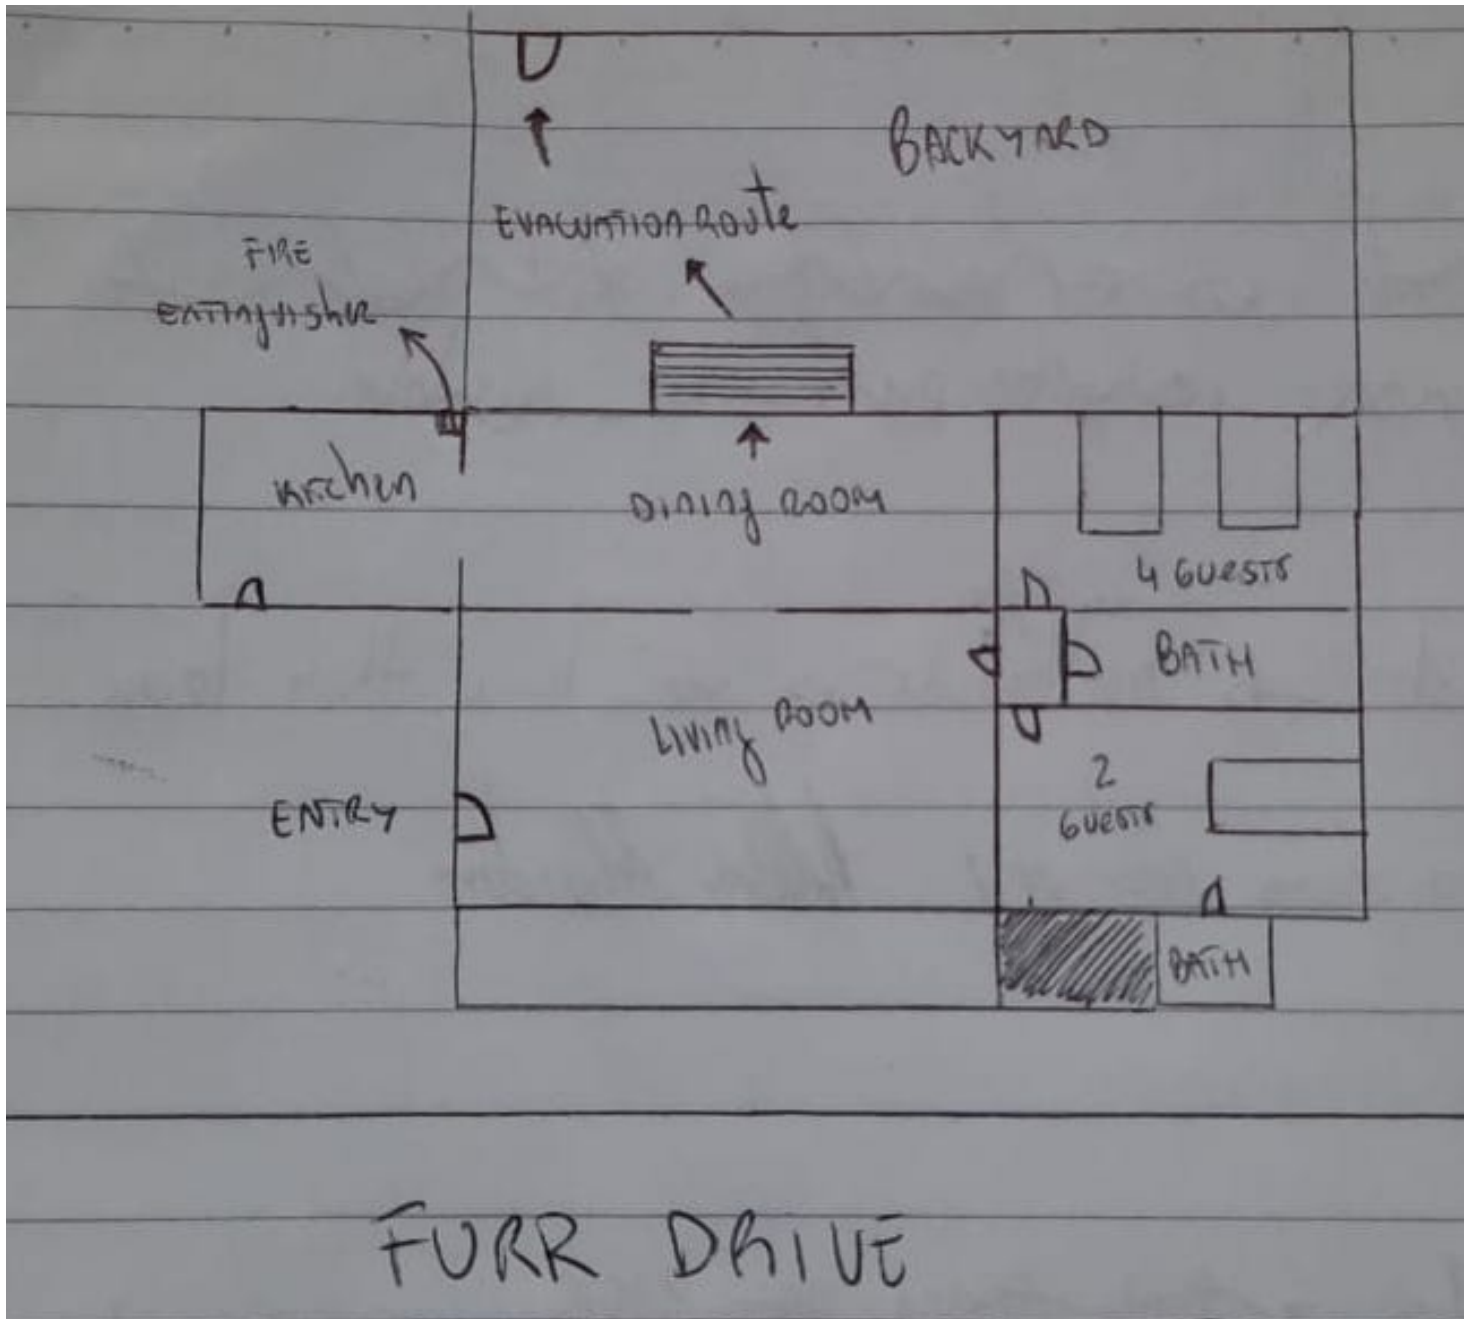 BACKYARD
EVACUATION ROUTE
FIRE
EXTINGUISHER
Kitchen
DINING ROOM
4 GUESTS
BATH
LIVING ROOM
2
GUESTS
ENTRY
BATH
FURR DRIVE